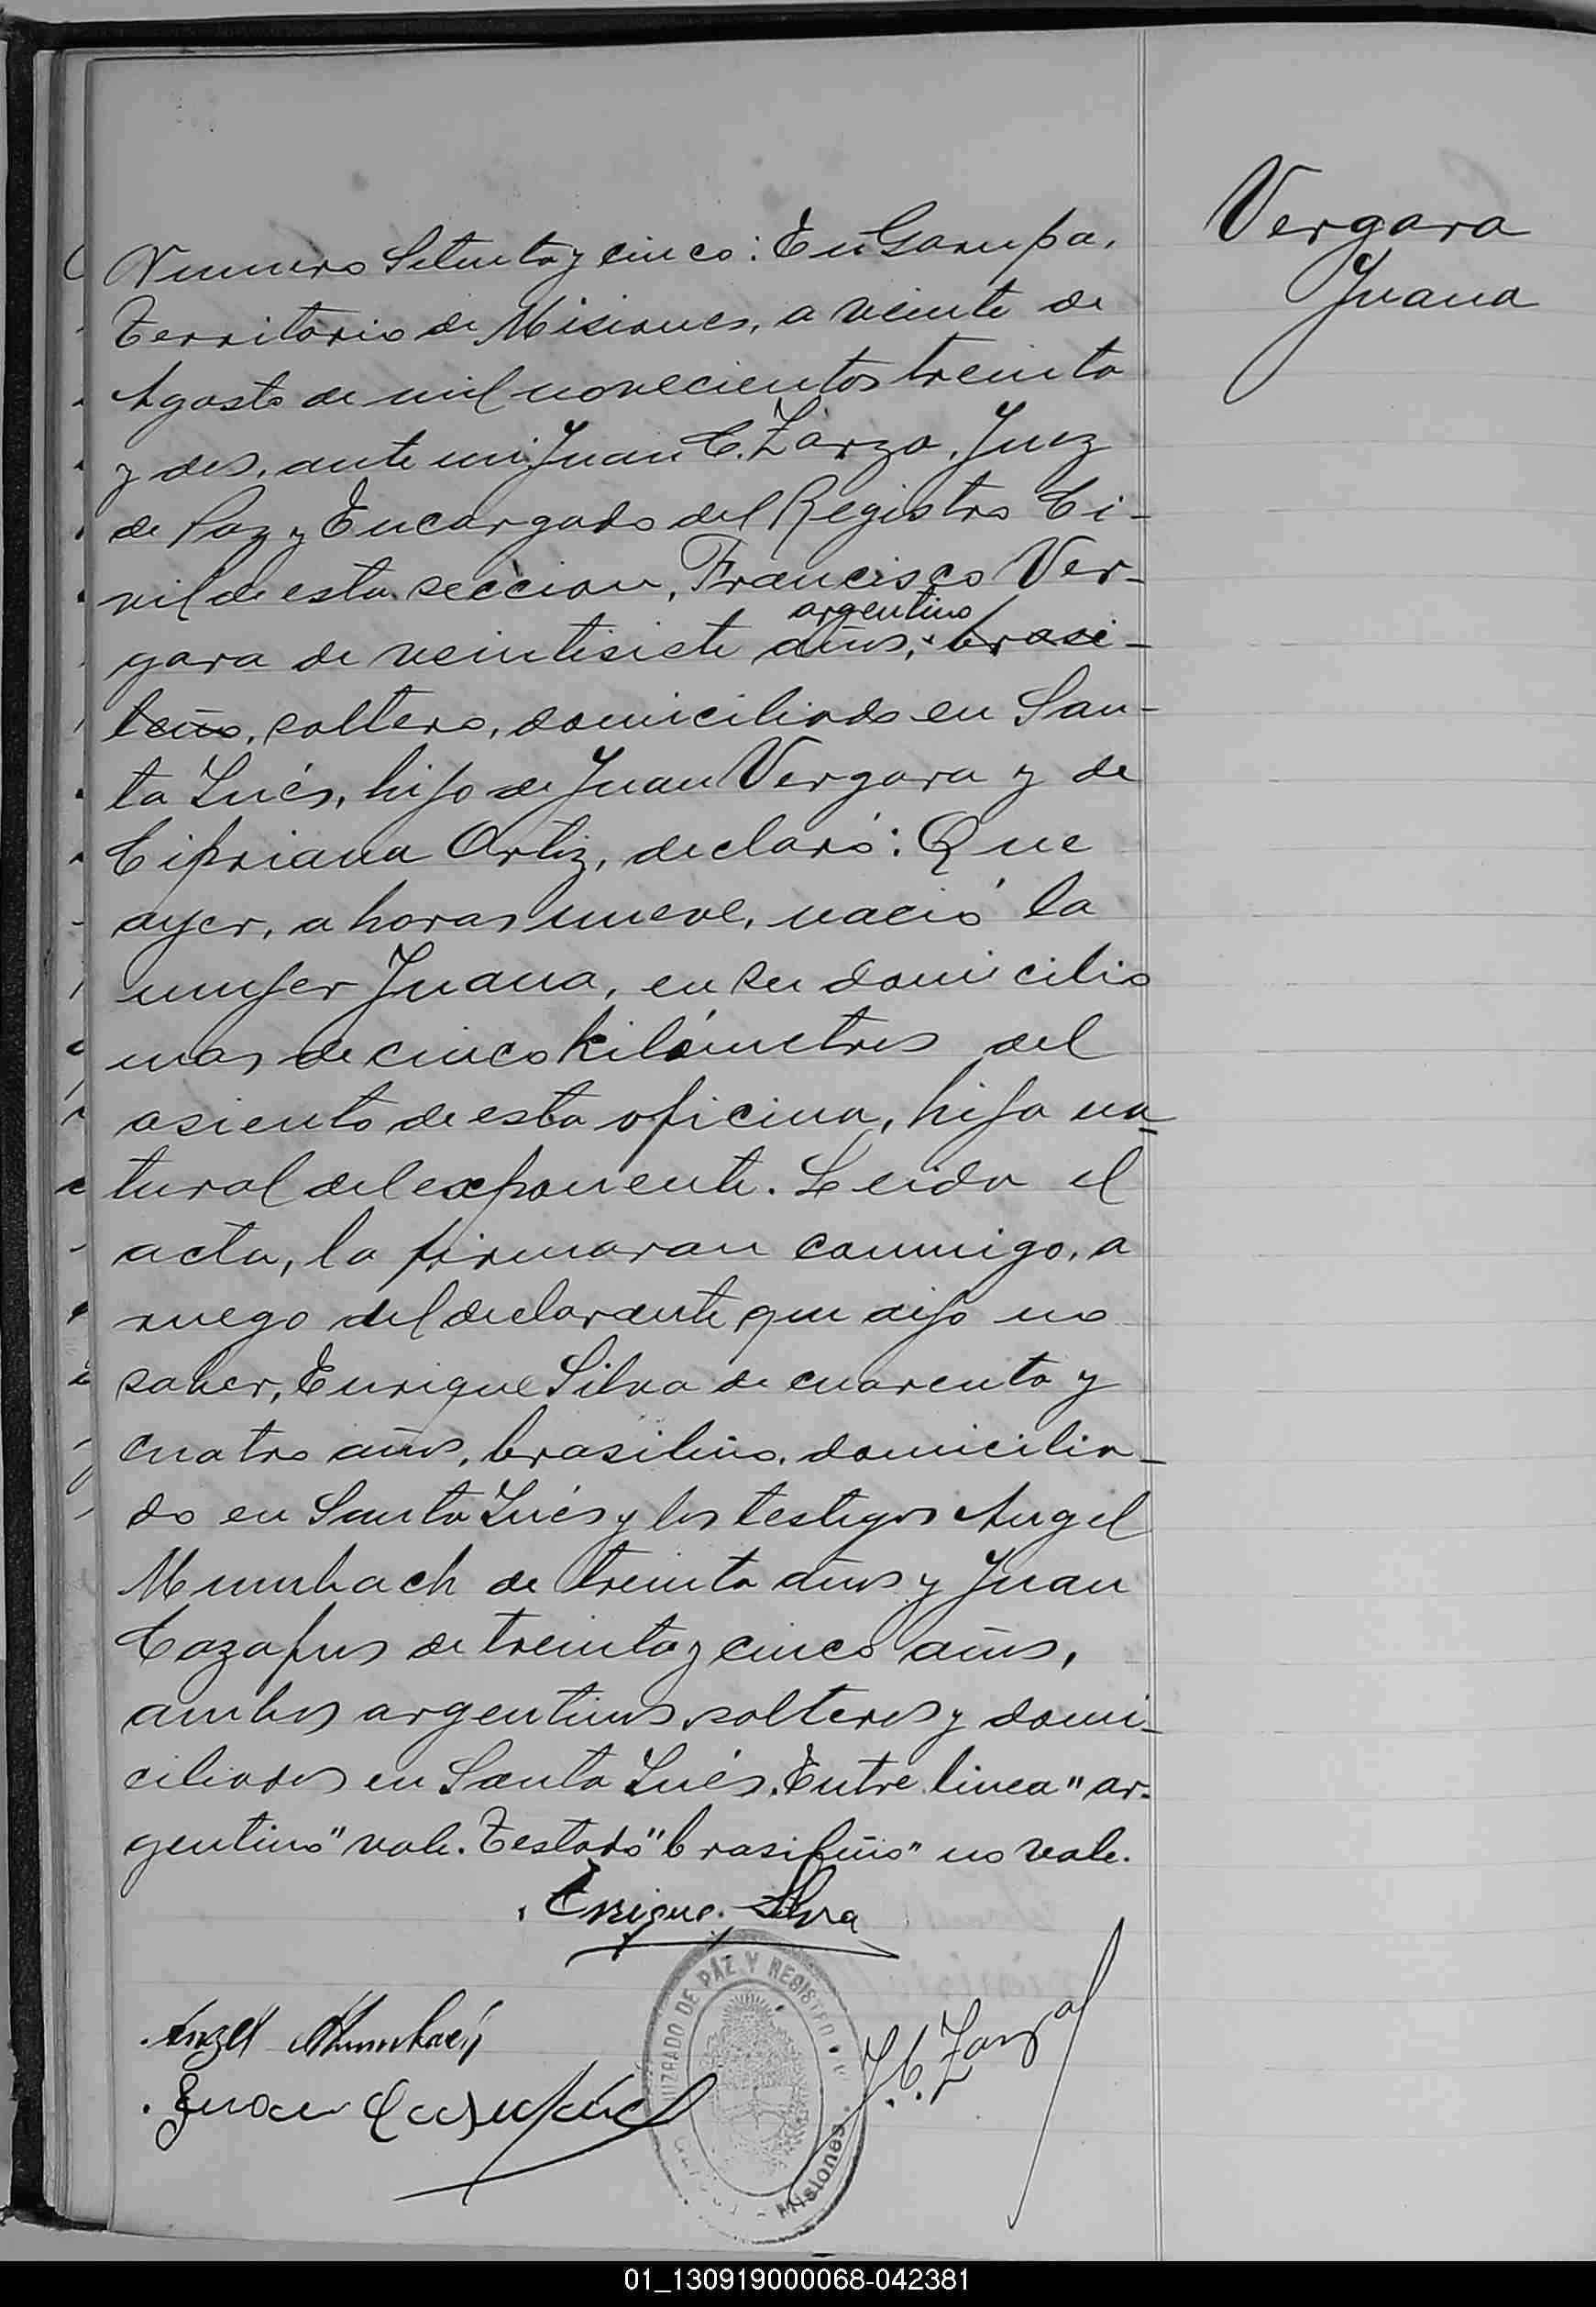 Vergara
Juana
Numero Setenta y cinco: En Garupa,
Territorio de Misiones, a veinte de
Agosto de mil novecientos treinta
y dos, ante mi Juan C. Zarza, Juez
de Paz y Encargado del Registro Ci-
vil de esta seccion, Francisco Ver-
argentino
gara de veintisiete años, brasi-
leño, soltero, domiciliado en San-
ta Inés, hijo de Juan Vergara y de
Cipriana Ortiz, declaró: Que
ayer, a horas nueve, nació la
mujer Juana, en su domicilio
mas de cinco kilómetros del
asiento de esta oficina, hija na-
tural del exponente. Leida el
acta, la firmaran conmigo, a
ruego del declarante que dijo no
saber, Enrique Silva de cuarenta y
cuatro años, brasileño, domicilia-
do en Santa Inés y los testigos Angel
Mumbach de treinta años y Juan
de treinta y cinco años,
ambos argentinos, solteros y domi-
ciliados en Santa Inés. Entre linea "ar-
gentino" vale. Testado "brasileño" no vale.
Enrique Silva
Angel Mumbach
Juan
J. C. Zarza
JUZGADO DE PAZ Y REGISTRO
Misiones
01_130919000068-042381